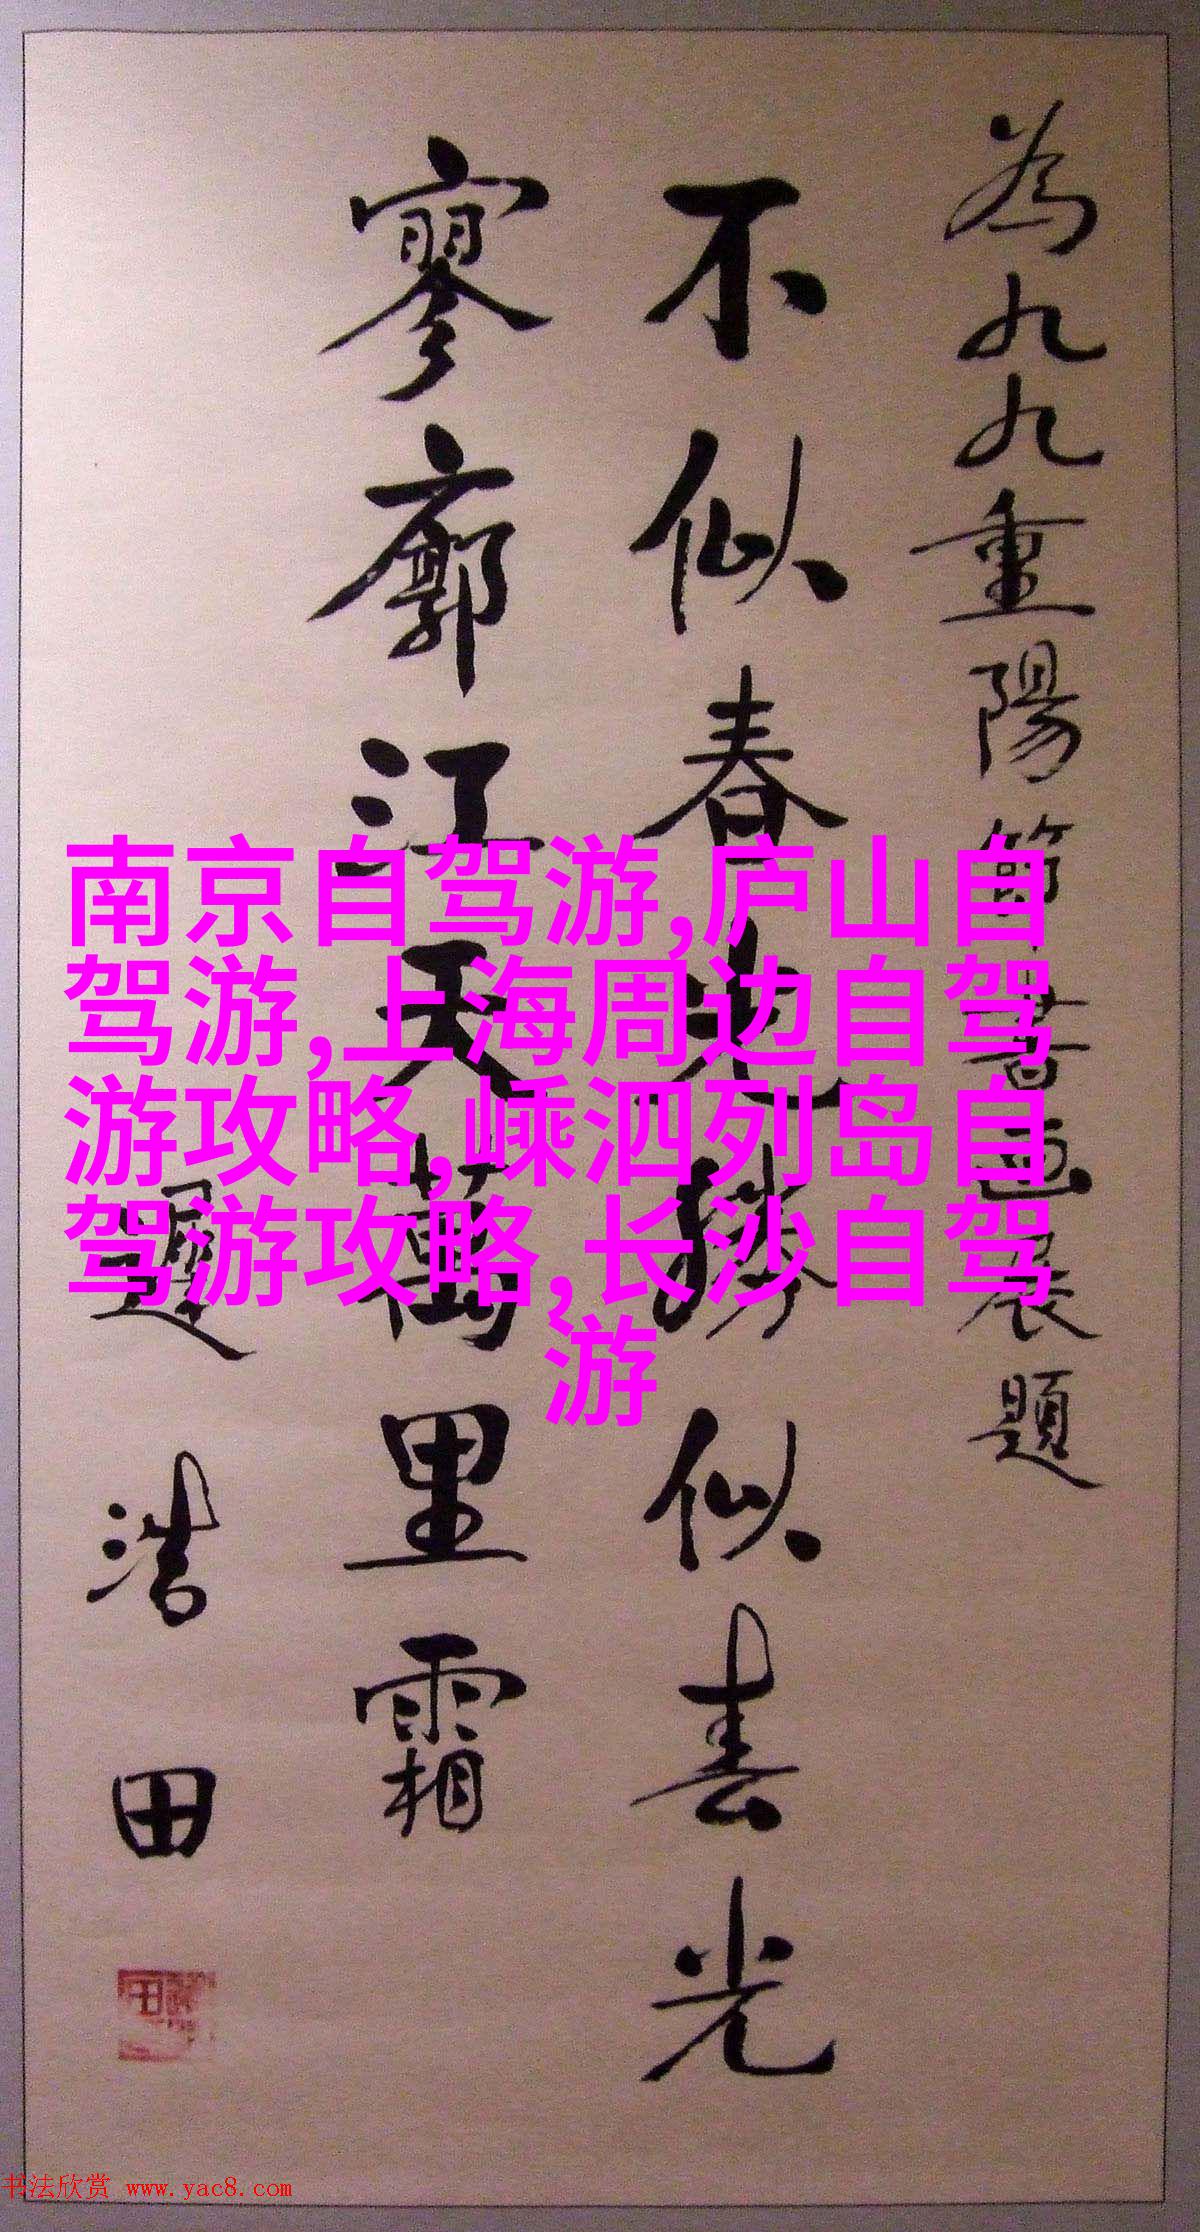 為九九重陽節書画展題
不似春光勝似春光
寥廓江天萬里霜
浩田
南京自驾游,庐山自
驾游,上海周边自驾
游攻略,嵊泗列岛自
驾游攻略,长沙自驾
游
书法欣赏 www.yac8.com